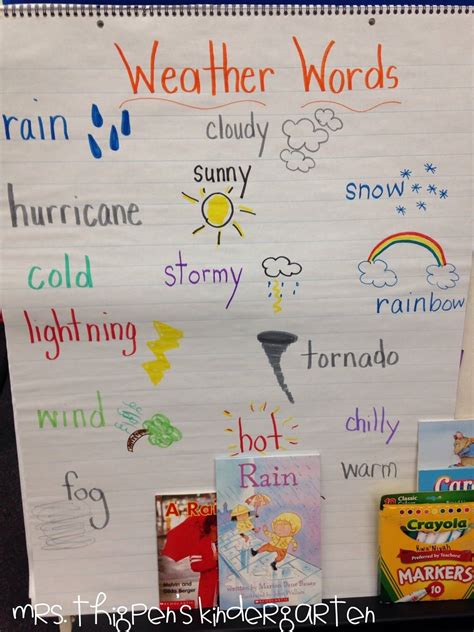 Weather Words
rain
cloudy
sunny
snow
hurricane
cold
stormy
rainbow
lightning
tornado
wind
hot
chilly
fog
warm
Rain
Crayola
MARKERS
10
mrs. thigpen's kindergarten